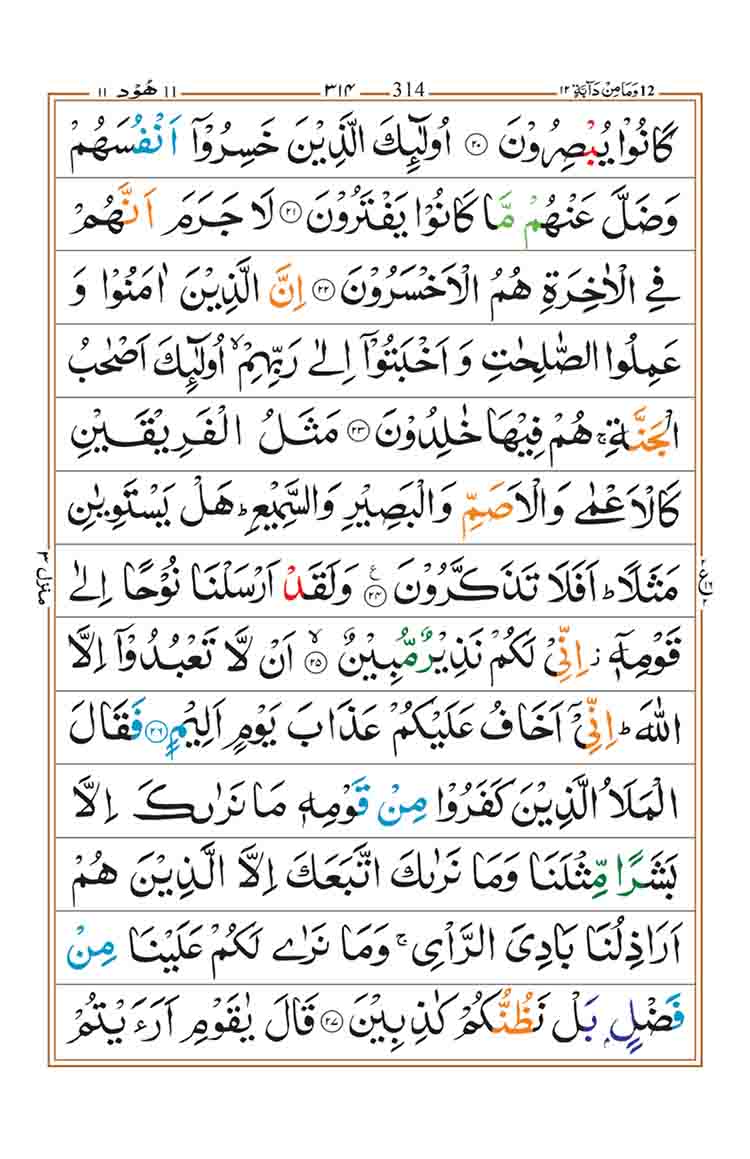 12 وَمَا مِنْ دَآبَّةٍ ١٢ 314 ٣١٤ 11 هُوْد ١١
كَانُوْا يُبْصِرُوْنَ ۝٢٠ اُولٰٓئِكَ الَّذِيْنَ خَسِرُوْٓا اَنْفُسَهُمْ
وَضَلَّ عَنْهُمْ مَّا كَانُوْا يَفْتَرُوْنَ ۝٢١ لَا جَرَمَ اَنَّهُمْ
فِي الْاٰخِرَةِ هُمُ الْاَخْسَرُوْنَ ۝٢٢ اِنَّ الَّذِيْنَ اٰمَنُوْا وَ
عَمِلُوا الصّٰلِحٰتِ وَ اَخْبَتُوْٓا اِلٰى رَبِّهِمْ ۙ اُولٰٓئِكَ اَصْحٰبُ
الْجَنَّةِ ۚ هُمْ فِيْهَا خٰلِدُوْنَ ۝٢٣ مَثَلُ الْفَرِيْقَيْنِ
كَالْاَعْمٰى وَالْاَصَمِّ وَالْبَصِيْرِ وَالسَّمِيْعِ ؕ هَلْ يَسْتَوِيٰنِ
مَثَلًا ؕ اَفَلَا تَذَكَّرُوْنَ ۝٢٤ ع وَلَقَدْ اَرْسَلْنَا نُوْحًا اِلٰى
قَوْمِهٖٓ ز اِنِّيْ لَكُمْ نَذِيْرٌ مُّبِيْنٌ ۝٢٥ ۙ اَنْ لَّا تَعْبُدُوْٓا اِلَّا
اللّٰهَ ؕ اِنِّيْٓ اَخَافُ عَلَيْكُمْ عَذَابَ يَوْمٍ اَلِيْمٍ ۝٢٦ فَقَالَ
الْمَلَاُ الَّذِيْنَ كَفَرُوْا مِنْ قَوْمِهٖ مَا نَرٰىكَ اِلَّا
بَشَرًا مِّثْلَنَا وَمَا نَرٰىكَ اتَّبَعَكَ اِلَّا الَّذِيْنَ هُمْ
اَرَاذِلُنَا بَادِيَ الرَّاْيِ ۚ وَمَا نَرٰى لَكُمْ عَلَيْنَا مِنْ
فَضْلٍۭ بَلْ نَظُنُّكُمْ كٰذِبِيْنَ ۝٢٧ قَالَ يٰقَوْمِ اَرَءَيْتُمْ
منزل ٣